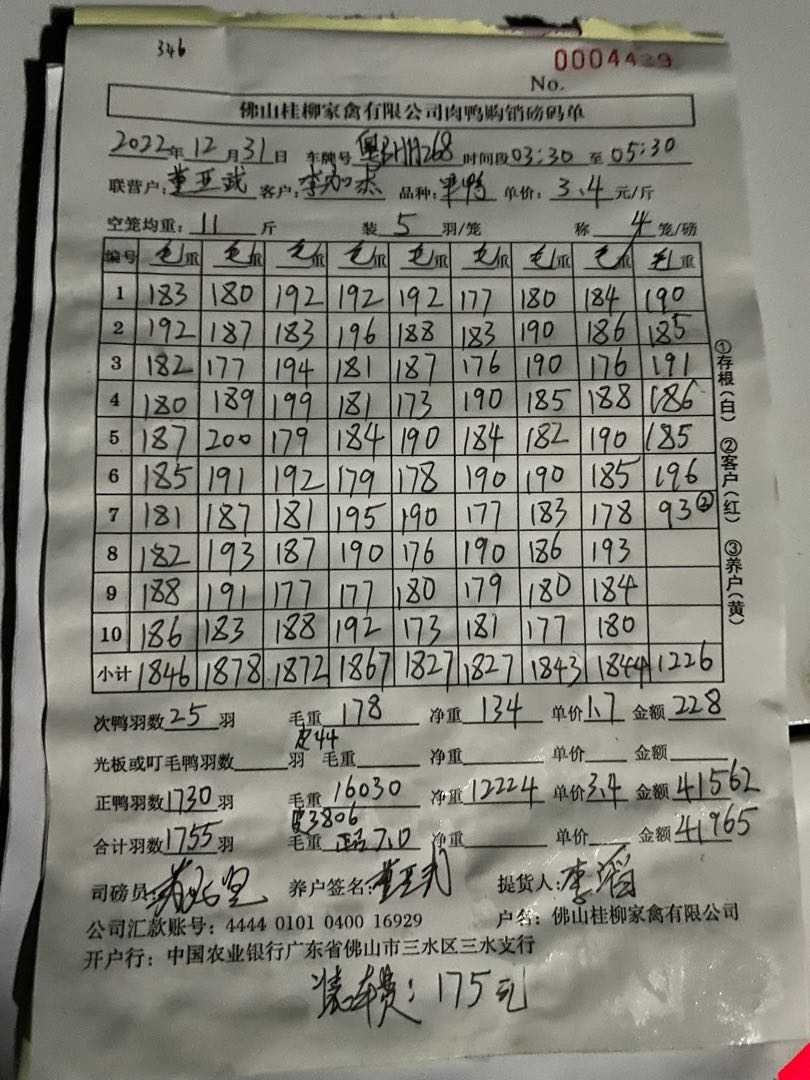 346
0004439
No.
佛山桂柳家禽有限公司肉鸭购销磅码单
2022年12月31日 车牌号 粤 268 时间段03:30 至 05:30
联营户:董亚武 客户:李加杰 品种: 鸭 单价:3.4元/斤
空笼均重:11斤 装5羽/笼 称4笼/磅
编号 毛重 毛重 毛重 毛重 毛重 毛重 毛重 毛重 毛重
1 183 180 192 192 192 177 180 184 190
2 192 187 183 196 188 183 190 186 185
3 182 177 194 181 187 176 190 176 191
4 180 189 199 181 173 190 185 188 186
5 187 200 179 184 190 184 182 190 185
6 185 191 192 179 178 190 190 185 196
7 181 187 181 195 190 177 183 178 93②
8 182 193 187 190 176 190 186 193
9 188 191 177 177 180 179 180 184
10 186 183 188 192 173 181 177 180
小计 1846 1878 1872 1867 1827 1827 1843 1844 1226
①存根(白) ②客户(红) ③养户(黄)
次鸭羽数25羽 毛重178 净重134 单价1.7 金额228
皮44
光板或叮毛鸭羽数 羽 毛重 净重 单价 金额
正鸭羽数1730羽 毛重16030 净重12224 单价3.4 金额41562
皮3806
合计羽数1755羽 毛重 7.0 净重 单价 金额41965
司磅员: 养户签名:董亚武 提货人:李滔
公司汇款账号:4444 0101 0400 16929 户名:佛山桂柳家禽有限公司
开户行:中国农业银行广东省佛山市三水区三水支行
装车费:175元